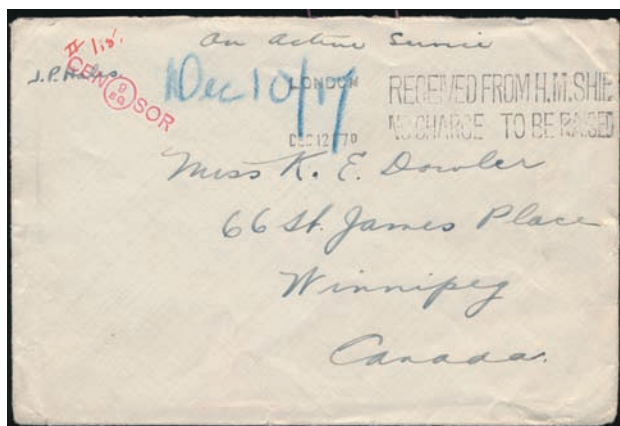 On Active Service
J. P. Hales
CENSOR
Dec 10/17
LONDON
DEC 12 17
RECEIVED FROM H.M. SHIP
NO CHARGE TO BE RAISED
Miss K. E. Dowler
66 St. James Place
Winnipeg
Canada.